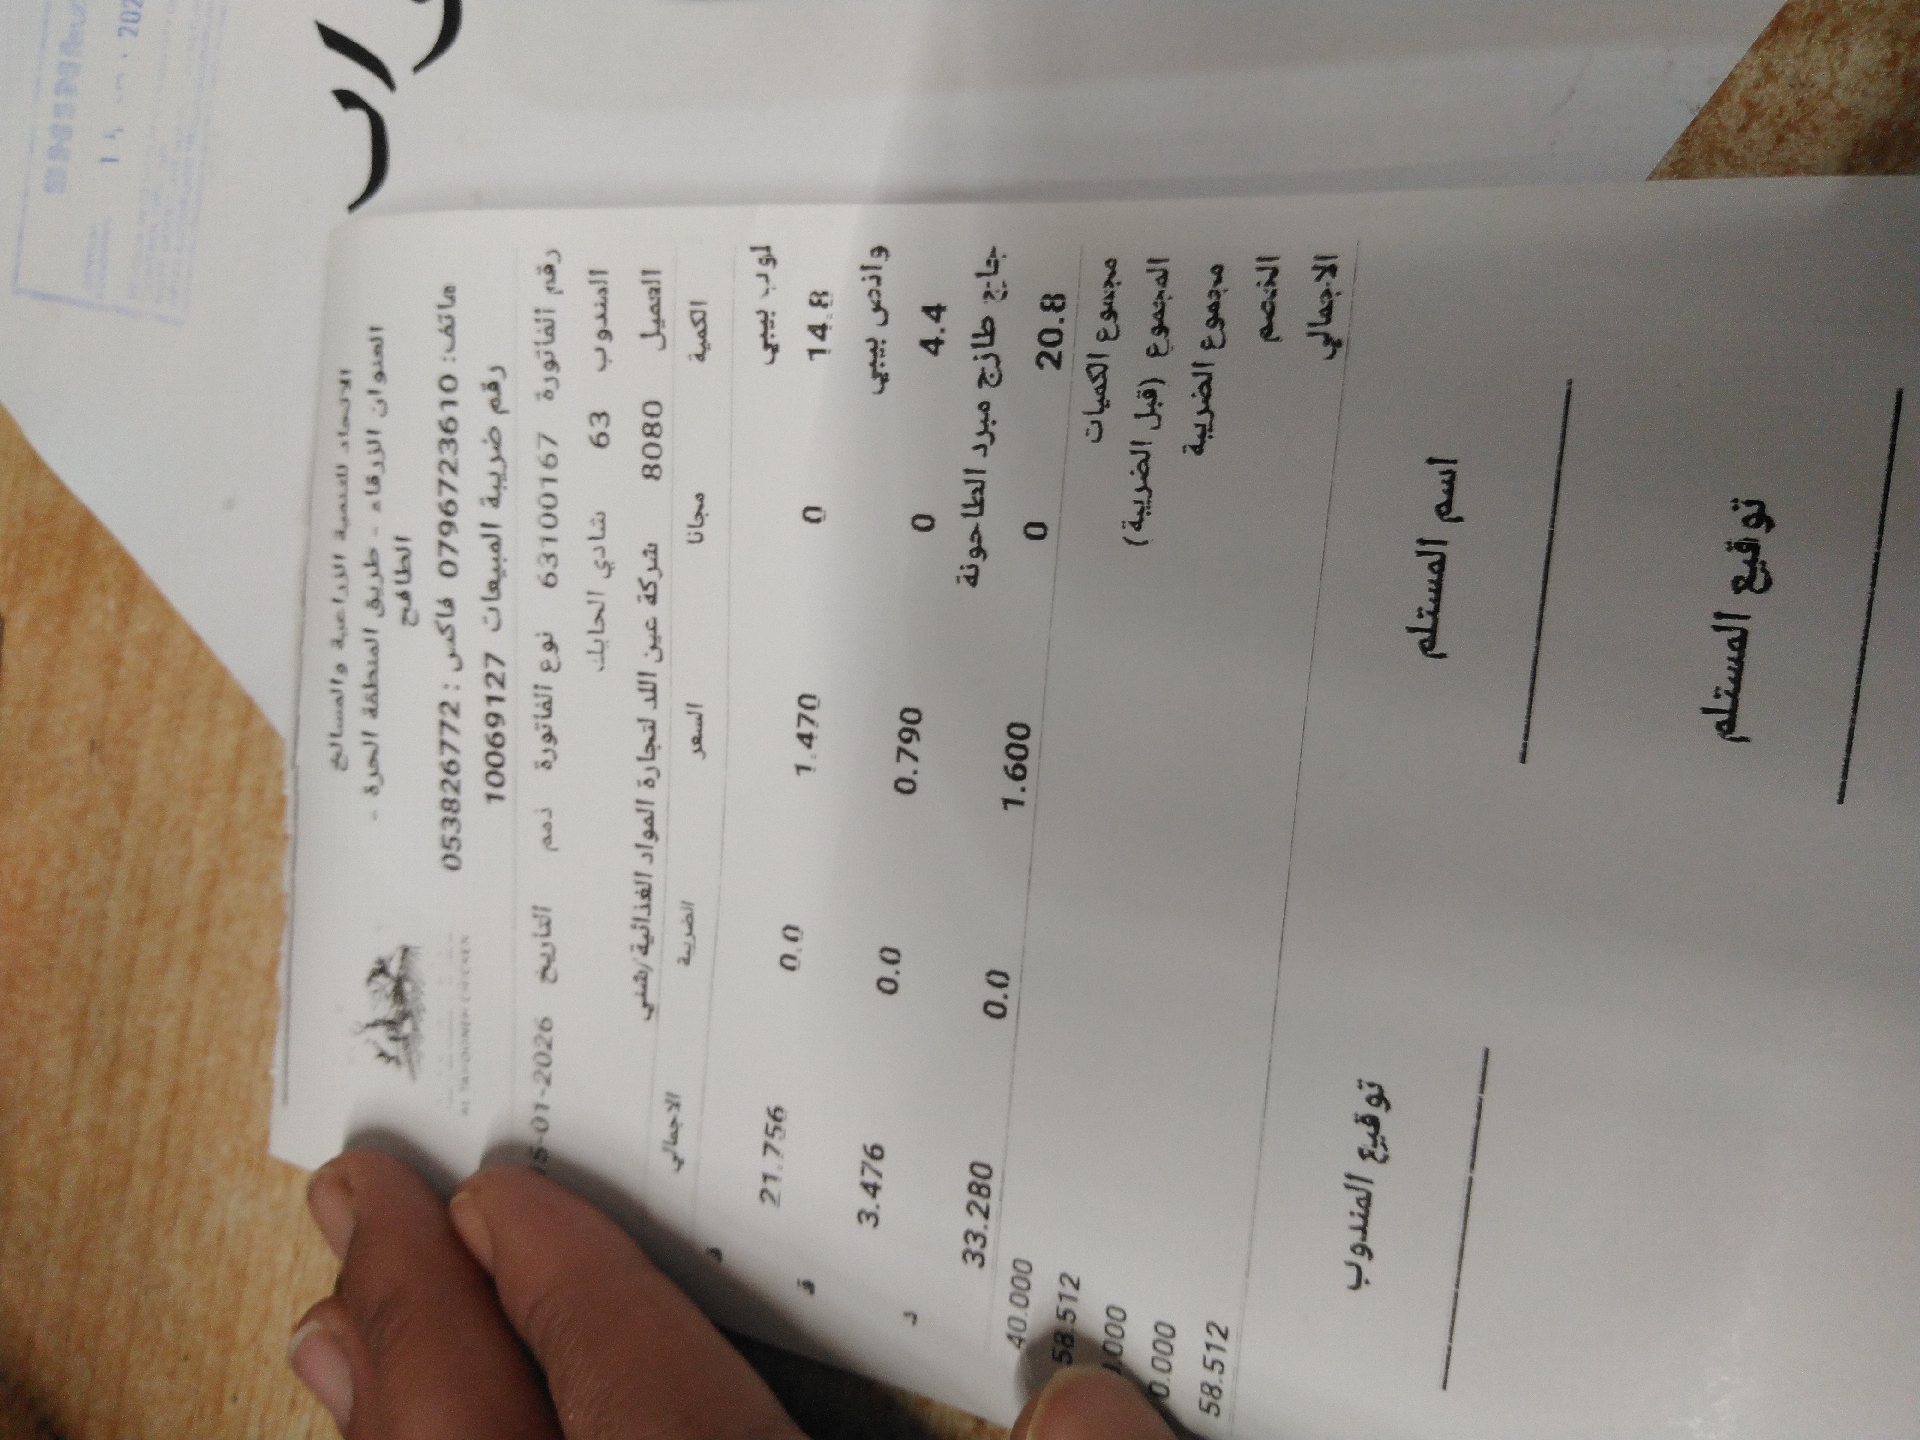 الاتحاد للتنمية الزراعية والمسالخ
العنوان الزرقاء - طريق المنطقة الحرة -
الطافح
هاتف: 0796723610 فاكس : 053826772
رقم ضريبة المبيعات 10069127
AL TAHOONEH CHICKEN
رقم الفاتورة 63100167 نوع الفاتورة ذمم التاريخ 5-01-2026
المندوب 63 شادي الحايك
العميل 8080 شركة عين اللد لتجارة المواد الغذائية/شني
الكمية مجانا السعر الضريبة الاجمالي
بيبي
14.8 0 1.470 0.0 21.756
بيبي
4.4 0 0.790 0.0 3.476
جاج طازج مبرد الطاحونة
20.8 0 1.600 0.0 33.280
مجموع الكميات 40.000
المجموع (قبل الضريبة) 58.512
مجموع الضريبة .000
الخصم 0.000
الاجمالي 58.512
اسم المستلم توقيع المندوب
توقيع المستلم